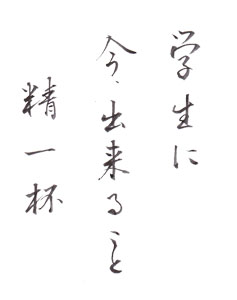 学生に
今、出来ること
精一杯